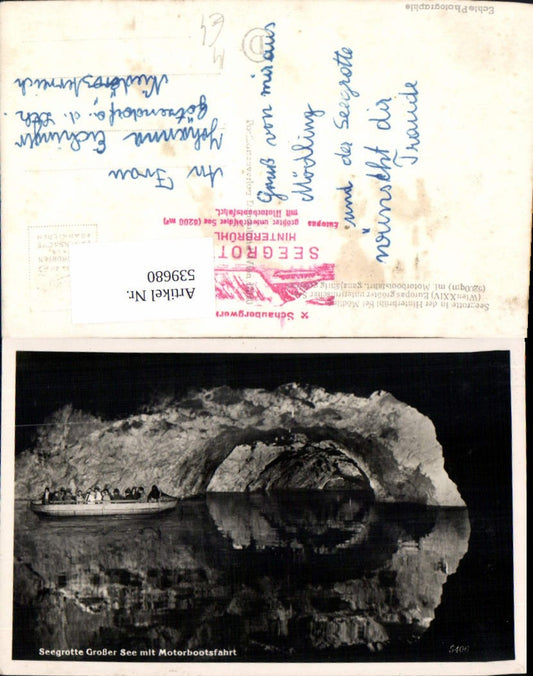 Echte Photographie
An Frau
Johanna Eichinger
Götzendorf a. d. Lth.
Niederösterreich
Gruß von mir aus
Mödling
und der Seegrotte
wünscht dir
Traude
Schaubergwerk
SEEGROT
HINTERBRÜHL
Europas
größter unterirdischer See (6200 m²)
mit Motorbootsfahrt.
Seegrotte in der Hinterbrühl bei Mödling
(Wien XXIV) Europas größter unterirdischer S
mit Motorbootsfahrt, ganzjährig
Artikel Nr.
539680
Seegrotte Großer See mit Motorbootsfahrt
5106